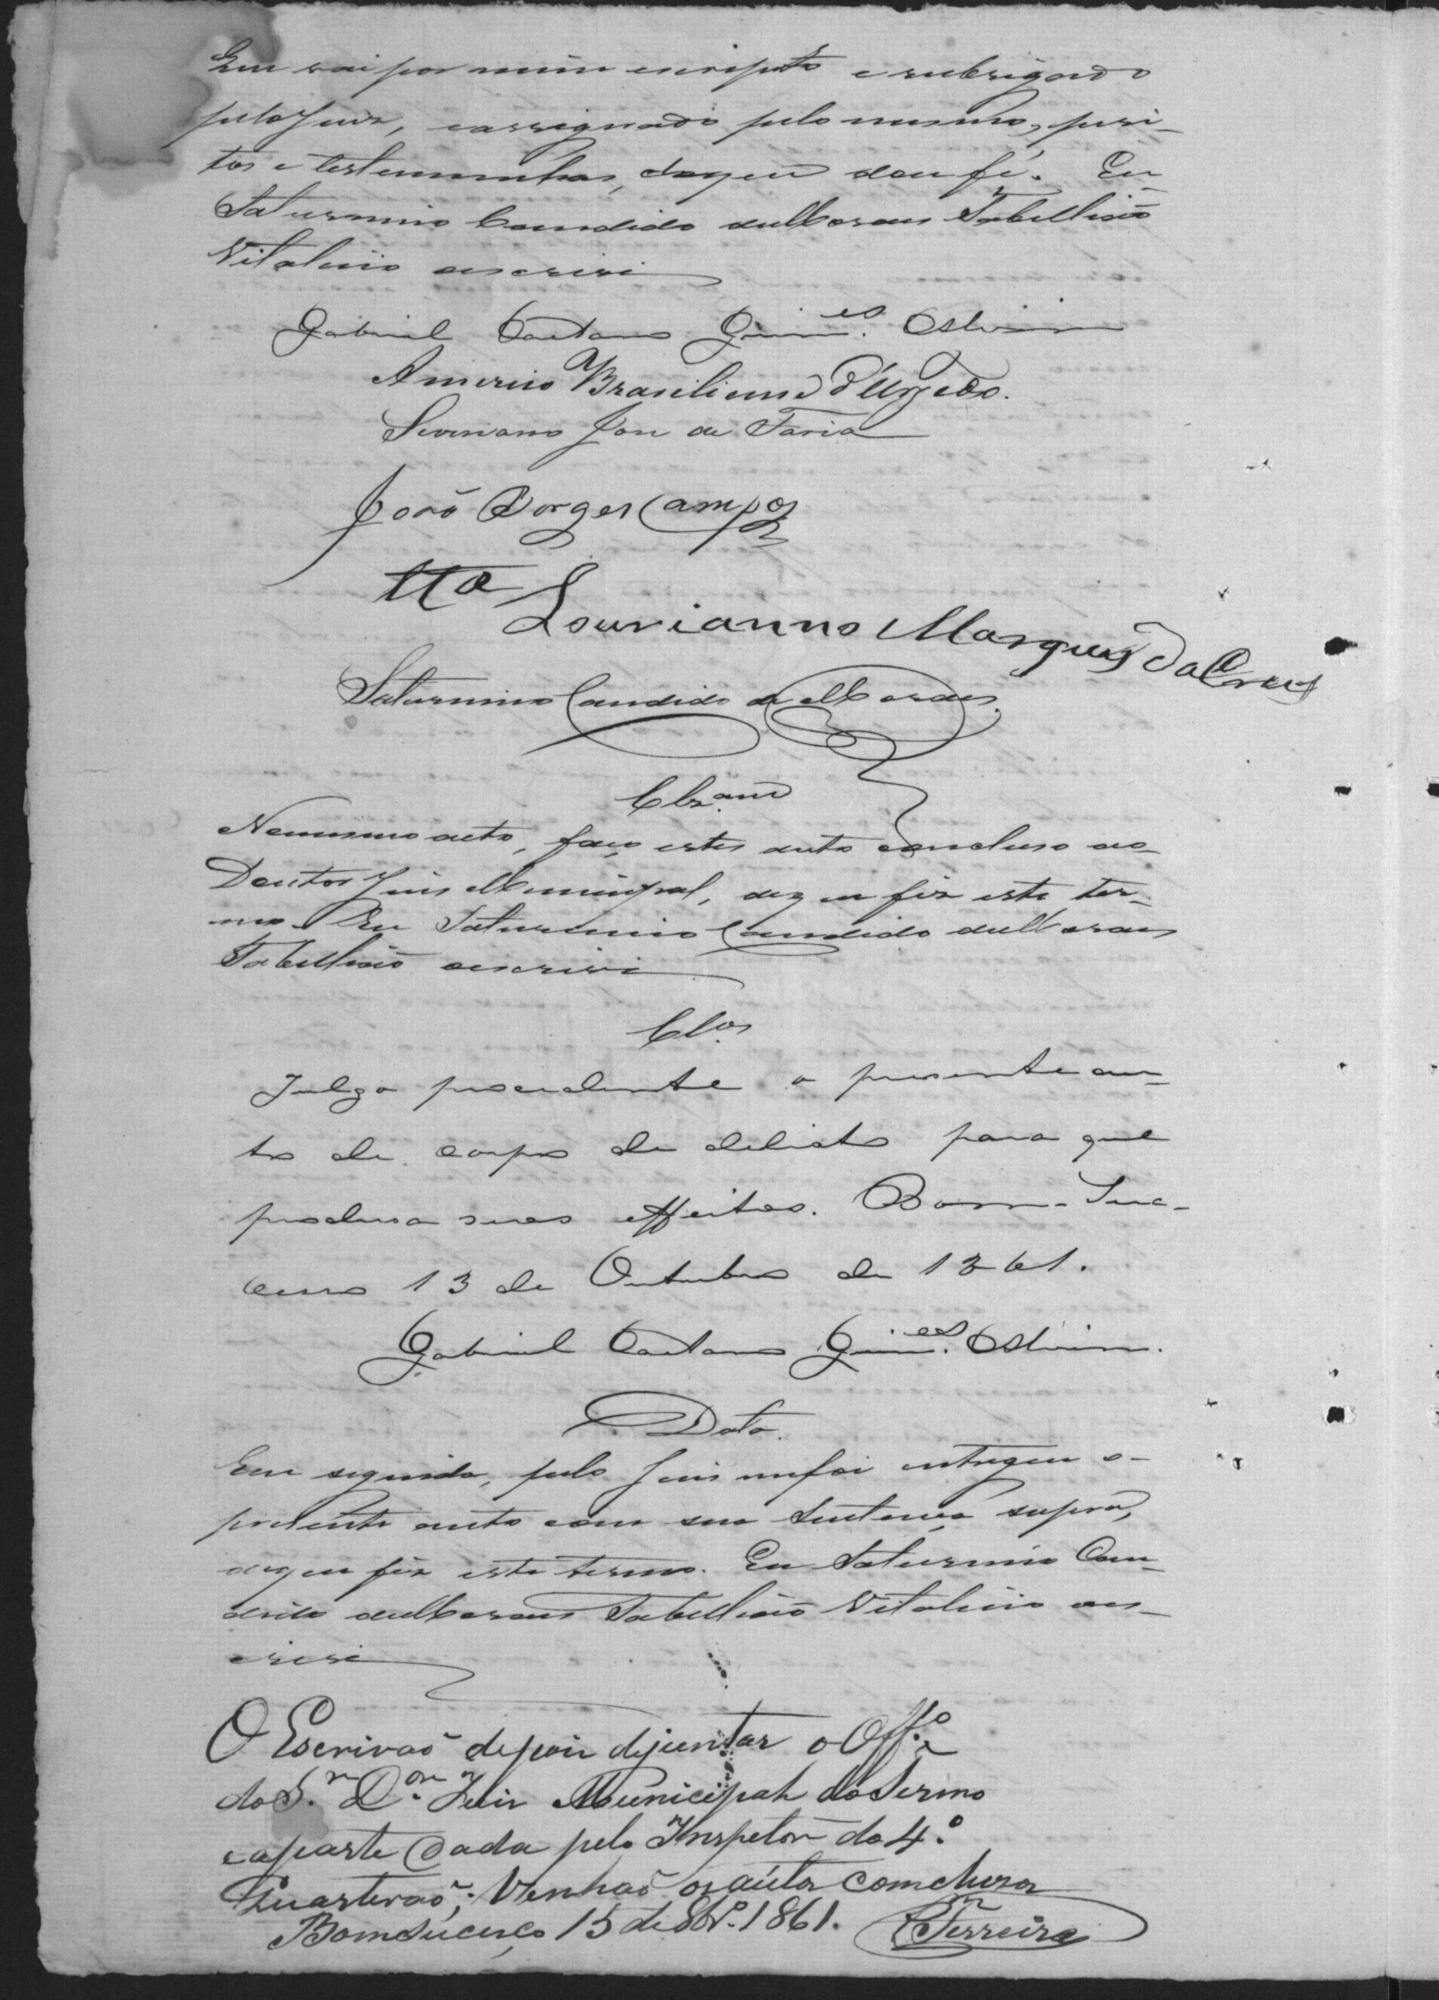 que vai por mim escripto e rubricado
pelo Juiz, e assignado pelo mesmo, peri-
tos e testemunhas, do que dou fé. Eu
Saturnino Candido de Moraes Tabellião
Vitalicio o escrivi
Gabriel Caetano Guim.es Alvim
Americo Brasiliense d'Urzedo.
Severiano José de Faria
João Borges Campos
tta Lourianno Marques da Cruz
Saturnino Candido de Moraes.
Clz.am
No mesmo acto, faço este auto concluso ao
Doutor Juis Municipal, do q eu fiz este ter-
mo. Eu Saturnino Candido de Moraes
Tabellião o escrivi
Cl.os
Julgo procedente o presente au-
to de corpo de delicto para que
produsa seus effeitos. Bom-Suc-
cesso 13 de Outubro de 1861.
Gabriel Caetano Guim.es Alvim.
Data.
Em seguida, pelo Juis me foi entregue o
presente auto com sua Sentença supra,
do q eu fiz este termo. Eu Saturnino Can-
dido de Moraes Tabellião Vitalicio o es-
crivi
O Escrivaõ depois dejuntar o Off.o
do S.r D.or Juis Municipal do Termo
e aparte dada pelo Inspetor do 4.o
Quarteraõ; Venhaõ os aútos comclusos
Bom Sucesço 15 de 8br.o 1861. Ferreira